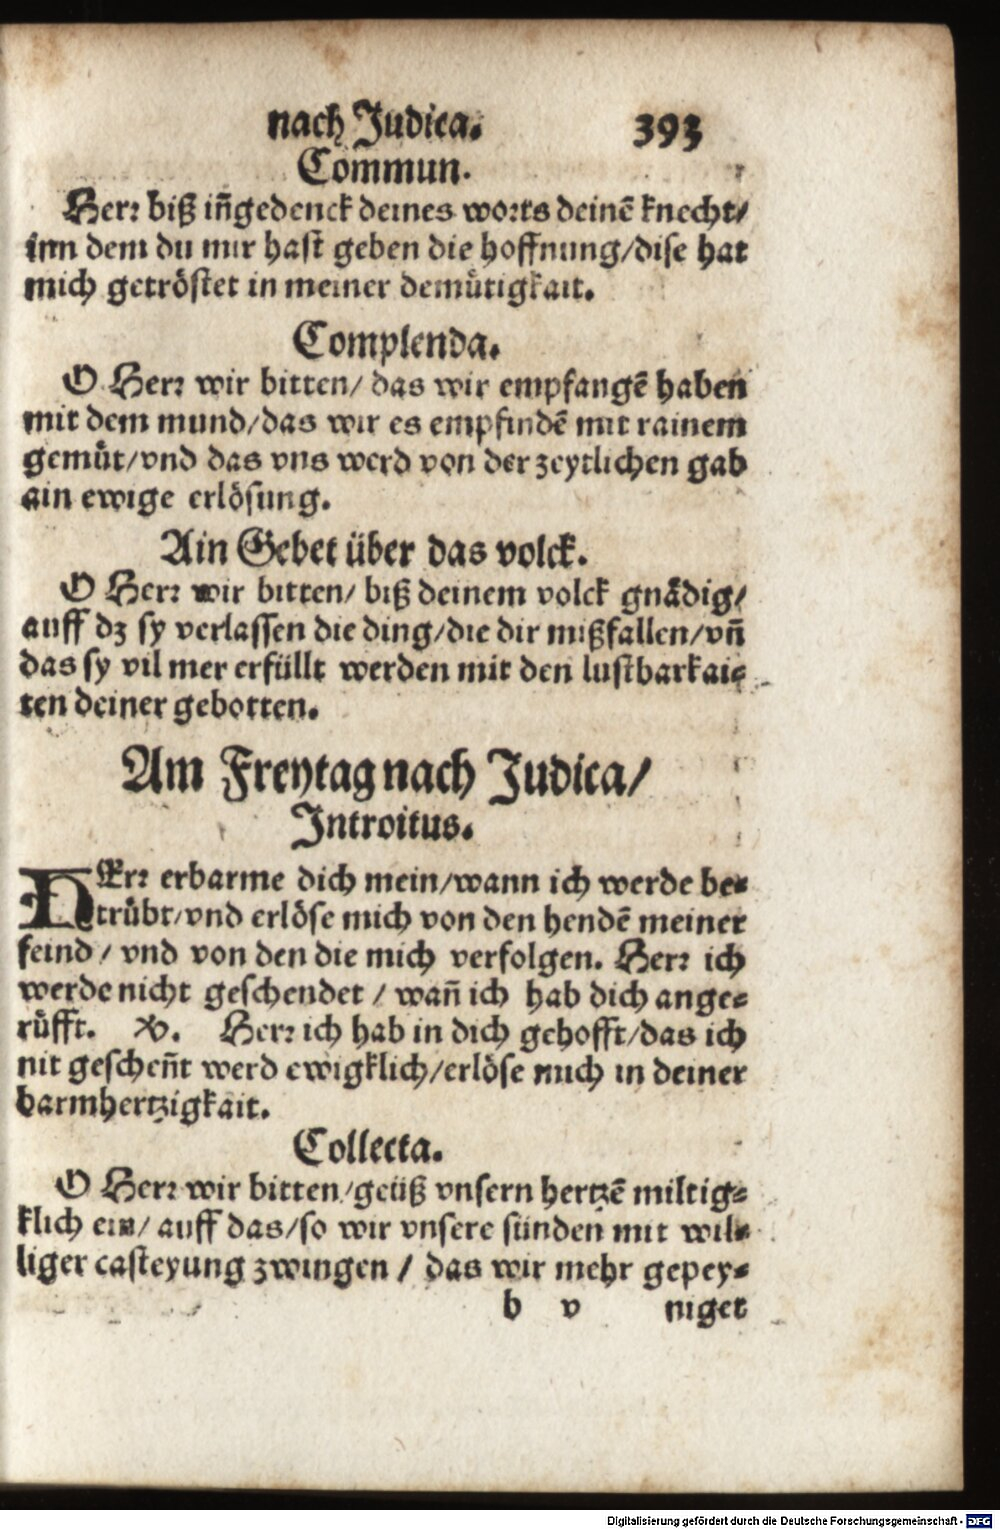 nach Judica. 393
Commun.
Herr biß iñgedenck deines worts deinē knecht/
inn dem du mir hast geben die hoffnung/dise hat
mich getröstet in meiner demuͤtigkait.
Complenda.
O Herr wir bitten/ das wir empfangē haben
mit dem mund/das wir es empfindē mit rainem
gemuͤt/vnd das vns werd von der zeytlichen gab
ain ewige erlösung.
Ain Gebet über das volck.
O Herr wir bitten/ biß deinem volck gnaͤdig/
auff dz sy verlassen die ding/die dir mißfallen/vñ
das sy vil mer erfüllt werden mit den lustbarkai⸗
ten deiner gebotten.
Am Freytag nach Judica/
Introitus.
HErr erbarme dich mein/wann ich werde be⸗
truͤbt/vnd erlöse mich von den hendē meiner
feind/ vnd von den die mich verfolgen. Herr ich
werde nicht geschendet / wañ ich hab dich ange⸗
ruͤfft. V. Herr ich hab in dich gehofft/das ich
nit gescheñt werd ewigklich/erlöse mich in deiner
barmhertzigkait.
Collecta.
O Herr wir bitten/geüß vnsern hertzē miltig⸗
klich ein/ auff das/so wir vnsere sünden mit wil⸗
liger casteyung zwingen / das wir mehr gepey⸗
b v niget
Digitalisierung gefördert durch die Deutsche Forschungsgemeinschaft - DFG